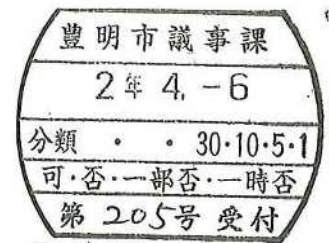 豊明市議事課
2年4.-6
分類 ・ ・ 30・10・5・1
可・否・一部否・一時否
第205号 受付